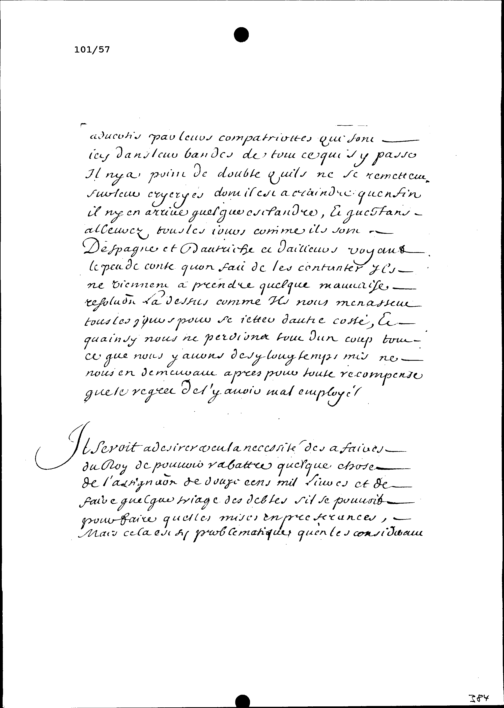 101/57
aduertis par leurs compatriottes qui sont
icy dans leur bandes de tout ce qui s'y passe
Il n'y a point de doubte quils ne se remettent
sur leur cryeryes dont il est a craindre quenfin
il n'y en arriue quelque esclandre, Et questans
alleuez tous les iours comme ils sont
Despagne et Dautriche et dailleurs voyant
le peu de conte quon fait de les contanter Ils
ne viennent a prendre quelque mauuaise
resoluon La dessus comme Ils nous menassent
tous les jours pour se ietter dautre costé, Et
quainsy nous ne perdions tout dun coup tout
ce que nous y auons de sy long temps mis ne
nous en demeurant apres pour toute recompense
que le regret De l'y auoir mal employé
Il seroit a desirer veu la necessité des afaires
du Roy de pouuoir rabattre quelque chose
de l'assignaon de douze cens mil liures et de
faire quelque triage des debtes s'il se pouuoit
pour faire quelles mises en preferances,
Mais cela est sy problematique, quen les considerant
384